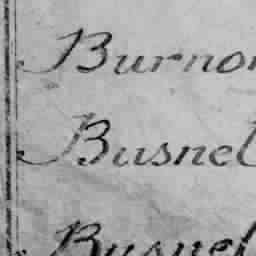 Burnon
Busnel
Busnel